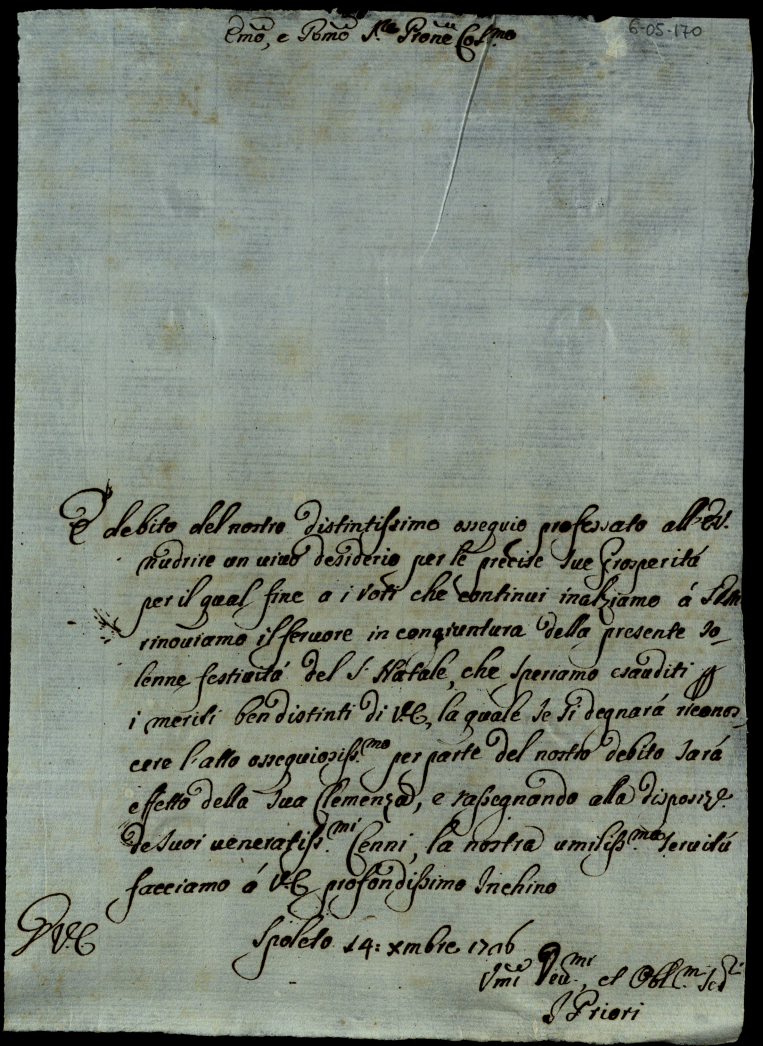 Emo, e Rmo Sre Prone Col.mo
6-05-170
È debito del nostro distintissimo ossequio professato all'E.V.
nudrire un vivo desiderio per le precise sue prosperità
per il qual fine a i voti che continui inalziamo á
rinoviamo il fervore in congiuntura della presente So_
lenne festività del S. Natale, che speriamo esauditi
i meriti ben distinti di V.E, la quale se si degnarà riconos_
cere l'atto ossequiosiss.mo per parte del nostro debito sarà
effetto della sua Clemenza, e rassegnando alla disposiz.e
de suoi veneratiss.mi Cenni, la nostra umiliss.ma servitú
facciamo á V.E. profondissimo Inchino
V.E
Spoleto 14: Xmbre 1716
Umi Deu.mi, et Obl.mi Ser.ri
I Priori